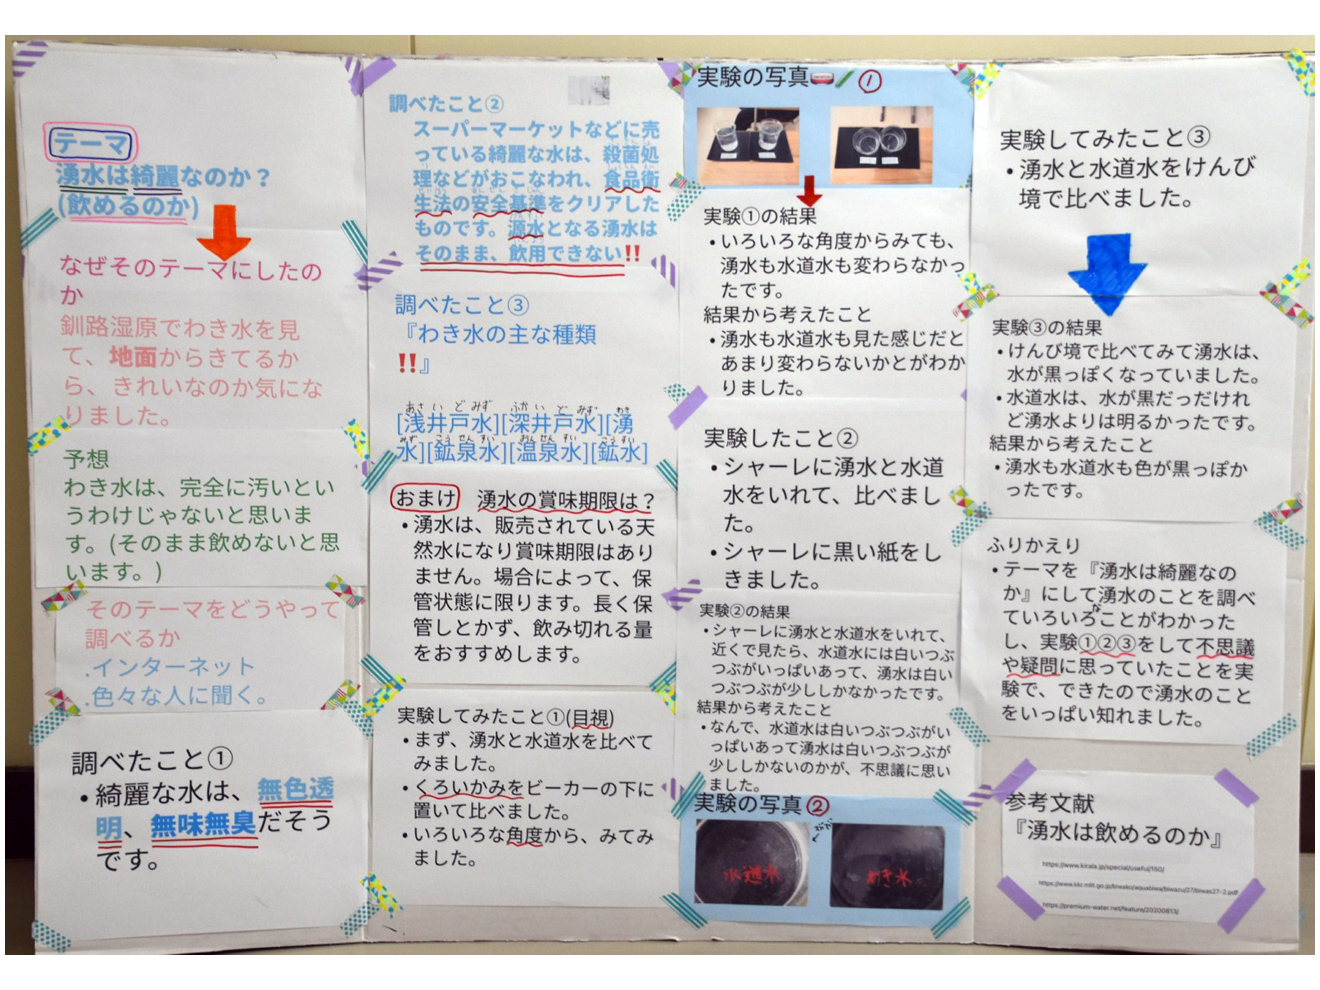 テーマ
湧水は綺麗なのか？
(飲めるのか)
なぜそのテーマにしたの
か
釧路湿原でわき水を見
て、地面からきてるか
ら、きれいなのか気にな
りました。
予想
わき水は、完全に汚いとい
うわけじゃないと思いま
す。(そのまま飲めないと思
います。)
そのテーマをどうやって
調べるか
.インターネット
.色々な人に聞く。
調べたこと①
・綺麗な水は、無色透
明、無味無臭だそう
です。
調べたこと②
スーパーマーケットなどに売
っている綺麗な水は、殺菌処
理などがおこなわれ、食品衛
生法の安全基準をクリアした
ものです。源水となる湧水は
そのまま、飲用できない‼
調べたこと③
『わき水の主な種類
‼』
あさいどみず ふかいどみず わき
[浅井戸水][深井戸水][湧
みず こうせんすい おんせんすい こうすい
水][鉱泉水][温泉水][鉱水]
おまけ 湧水の賞味期限は？
・湧水は、販売されている天
然水になり賞味期限はあり
ません。場合によって、保
管状態に限ります。長く保
管しとかず、飲み切れる量
をおすすめします。
実験してみたこと①(目視)
・まず、湧水と水道水を比べて
みました。
・くろいかみをビーカーの下に
置いて比べました。
・いろいろな角度から、みてみ
ました。
実験の写真①
実験①の結果
・いろいろな角度からみても、
湧水も水道水も変わらなかっ
たです。
結果から考えたこと
・湧水も水道水も見た感じだと
あまり変わらないかとがわか
りました。
実験したこと②
・シャーレに湧水と水道
水をいれて、比べまし
た。
・シャーレに黒い紙をし
きました。
実験②の結果
・シャーレに湧水と水道水をいれて、
近くで見たら、水道水には白いつぶ
つぶがいっぱいあって、湧水は白い
つぶつぶが少ししかなかったです。
結果から考えたこと
・なんで、水道水は白いつぶつぶがい
っぱいあって湧水は白いつぶつぶが
少ししかないのかが、不思議に思い
ました。
実験の写真②
水道水
わき水
実験してみたこと③
・湧水と水道水をけんび
境で比べました。
実験③の結果
・けんび境で比べてみて湧水は、
水が黒っぽくなっていました。
・水道水は、水が黒だっだけれ
ど湧水よりは明るかったです。
結果から考えたこと
・湧水も水道水も色が黒っぽか
ったです。
ふりかえり
・テーマを『湧水は綺麗なの
か』にして湧水のことを調べ
ていろいろなことがわかった
し、実験①②③をして不思議
や疑問に思っていたことを実
験で、できたので湧水のこと
をいっぱい知れました。
参考文献
『湧水は飲めるのか』
https://www.kirala.jp/special/useful/150/
https://www.kkr.mlit.go.jp/biwako/aquabiwa/biwazu/27/biwas27-2.pdf
https://premium-water.net/feature/20200813/